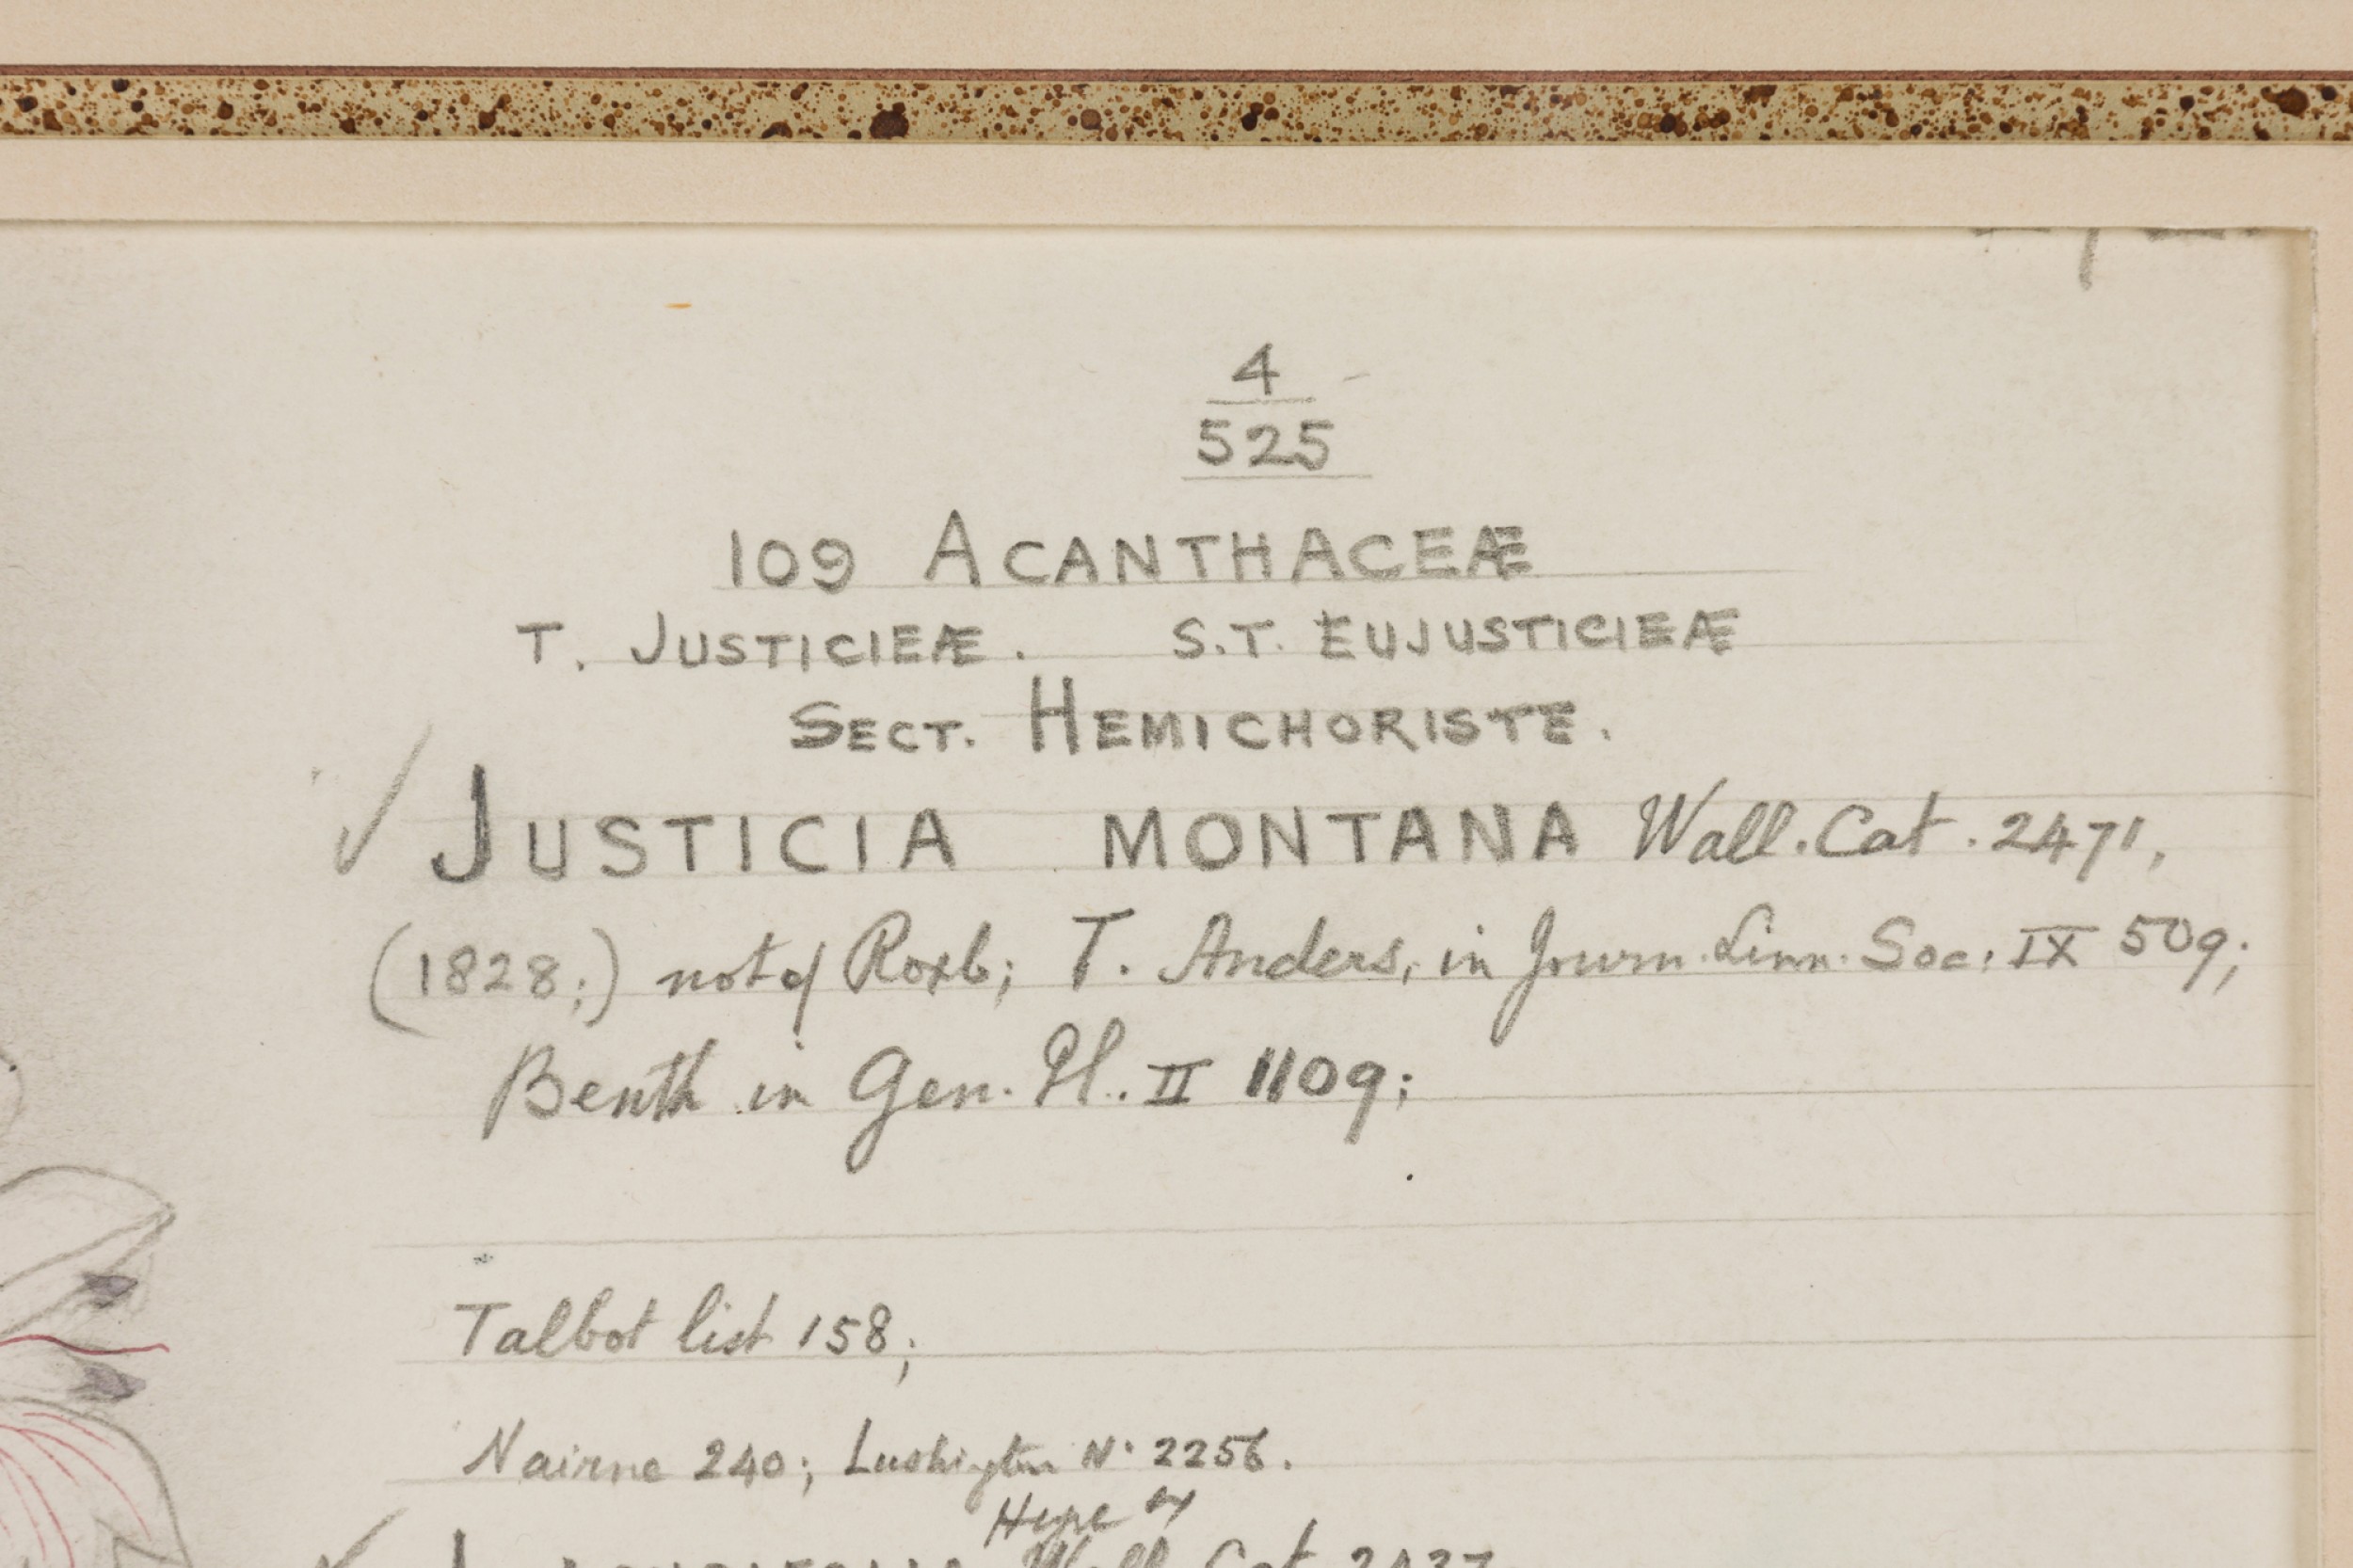 4
525
109 ACANTHACEÆ
T. JUSTICIEÆ. S.T. EUJUSTICIEÆ
SECT. HEMICHORISTE.
✓ JUSTICIA MONTANA Wall. Cat. 2471,
(1828;) not of Roxb; T. Anders, in Journ. Linn. Soc. IX 509;
Benth in Gen. Pl. II 1109;
Talbot list 158;
Nairne 240; Lushigton Nº 2256.
Wall. Cat. 2437